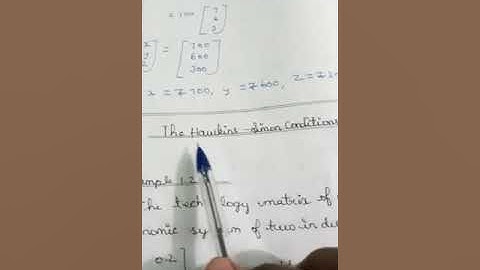 = 100 [7 6 3]
[x y z] = [700 600 300]
x = ₹700, y = ₹600, z = ₹3
The Hawkins-Simon Conditions
ample 1.2
the tech logy matrix of
nomic sy m of two in du
0.2]